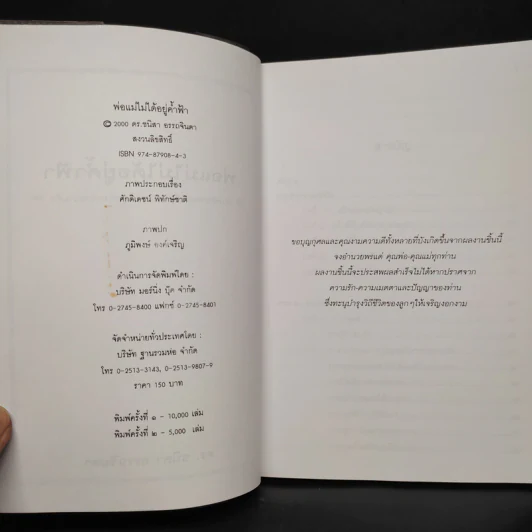 พ่อแม่ไม่ได้อยู่ค้ำฟ้า
© 2000 ดร.ชนิสา อรรถจินดา
สงวนลิขสิทธิ์
ISBN 974-87908-4-3
ภาพประกอบเรื่อง
ศักดิ์เดชน์ พิทักษ์ชาติ
ภาพปก
ภูมิพงษ์ องค์เจริญ
ดำเนินการจัดพิมพ์โดย :
บริษัท มอร์นิ่ง บุ๊ค จำกัด
โทร 0-2745-8400 แฟกซ์ 0-2745-8401
จัดจำหน่ายทั่วประเทศโดย :
บริษัท ฐานรวมห่อ จำกัด
โทร 0-2513-3143, 0-2513-9807-9
ราคา 150 บาท
พิมพ์ครั้งที่ ๑ - 10,000 เล่ม
พิมพ์ครั้งที่ ๒ - 5,000 เล่ม
ขอบุญกุศลและคุณงามความดีทั้งหลายที่บังเกิดขึ้นจากผลงานชิ้นนี้
จงอำนวยพรแด่ คุณพ่อ-คุณแม่ทุกท่าน
ผลงานชิ้นนี้จะประสพผลสำเร็จไม่ได้หากปราศจาก
ความรัก-ความเมตตาและปัญญาของท่าน
ซึ่งทะนุบำรุงวิถีชีวิตของลูกๆให้เจริญงอกงาม